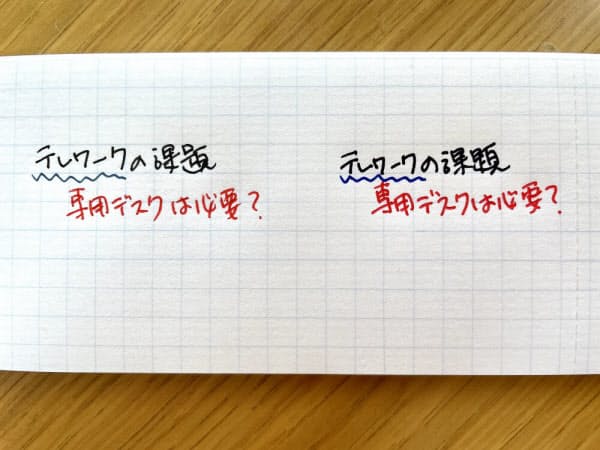 テレワークの課題
専用デスクは必要？
テレワークの課題
専用デスクは必要？